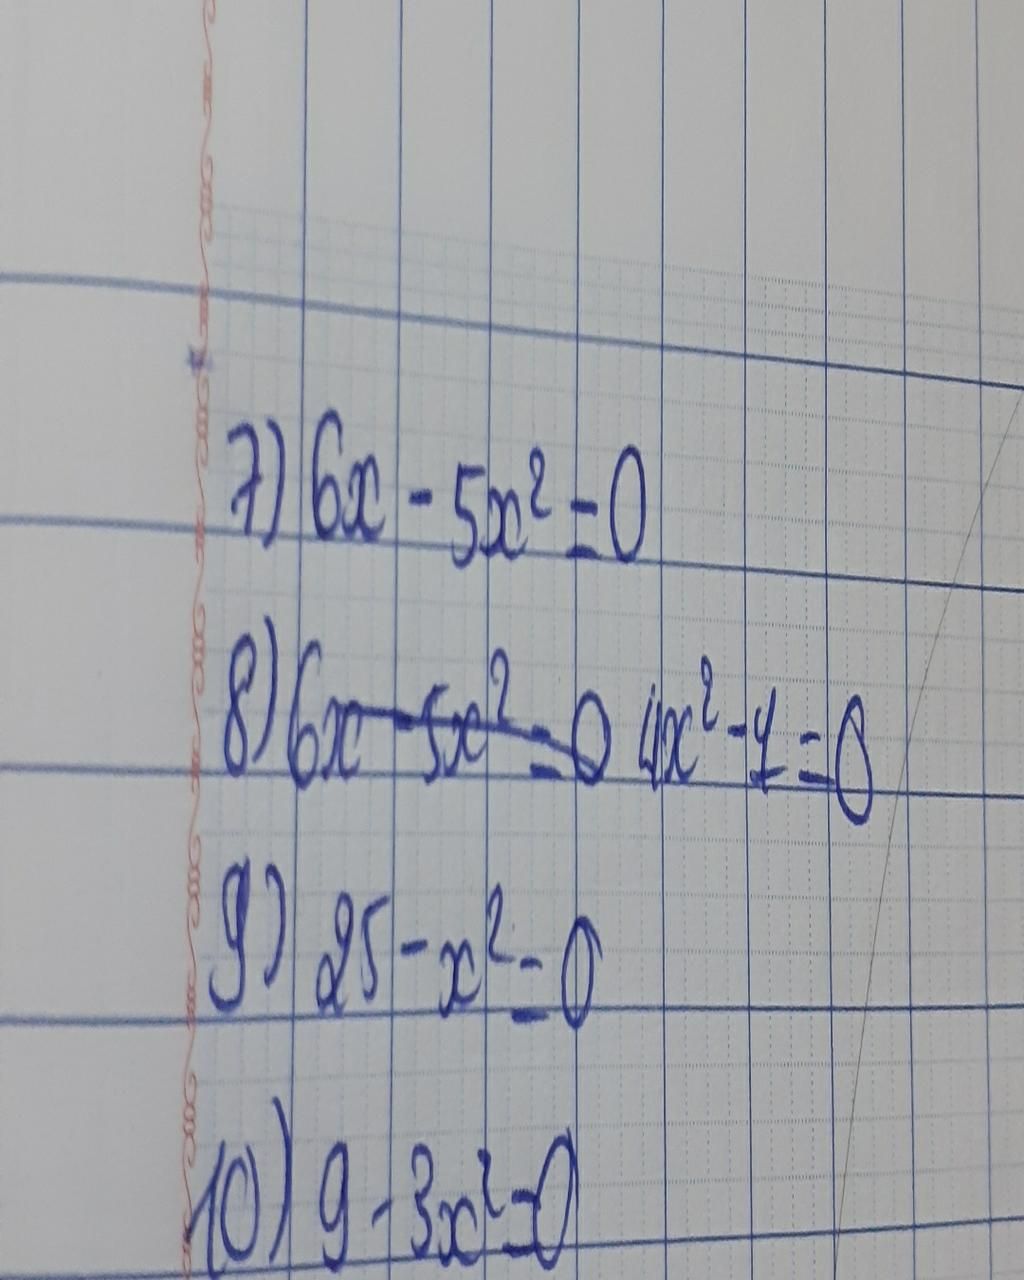 7) 6x - 5x² = 0
8) 6x - 5x² = 0 4x² - 1 = 0
9) 25 - x² = 0
10) 9 - 3x² = 0